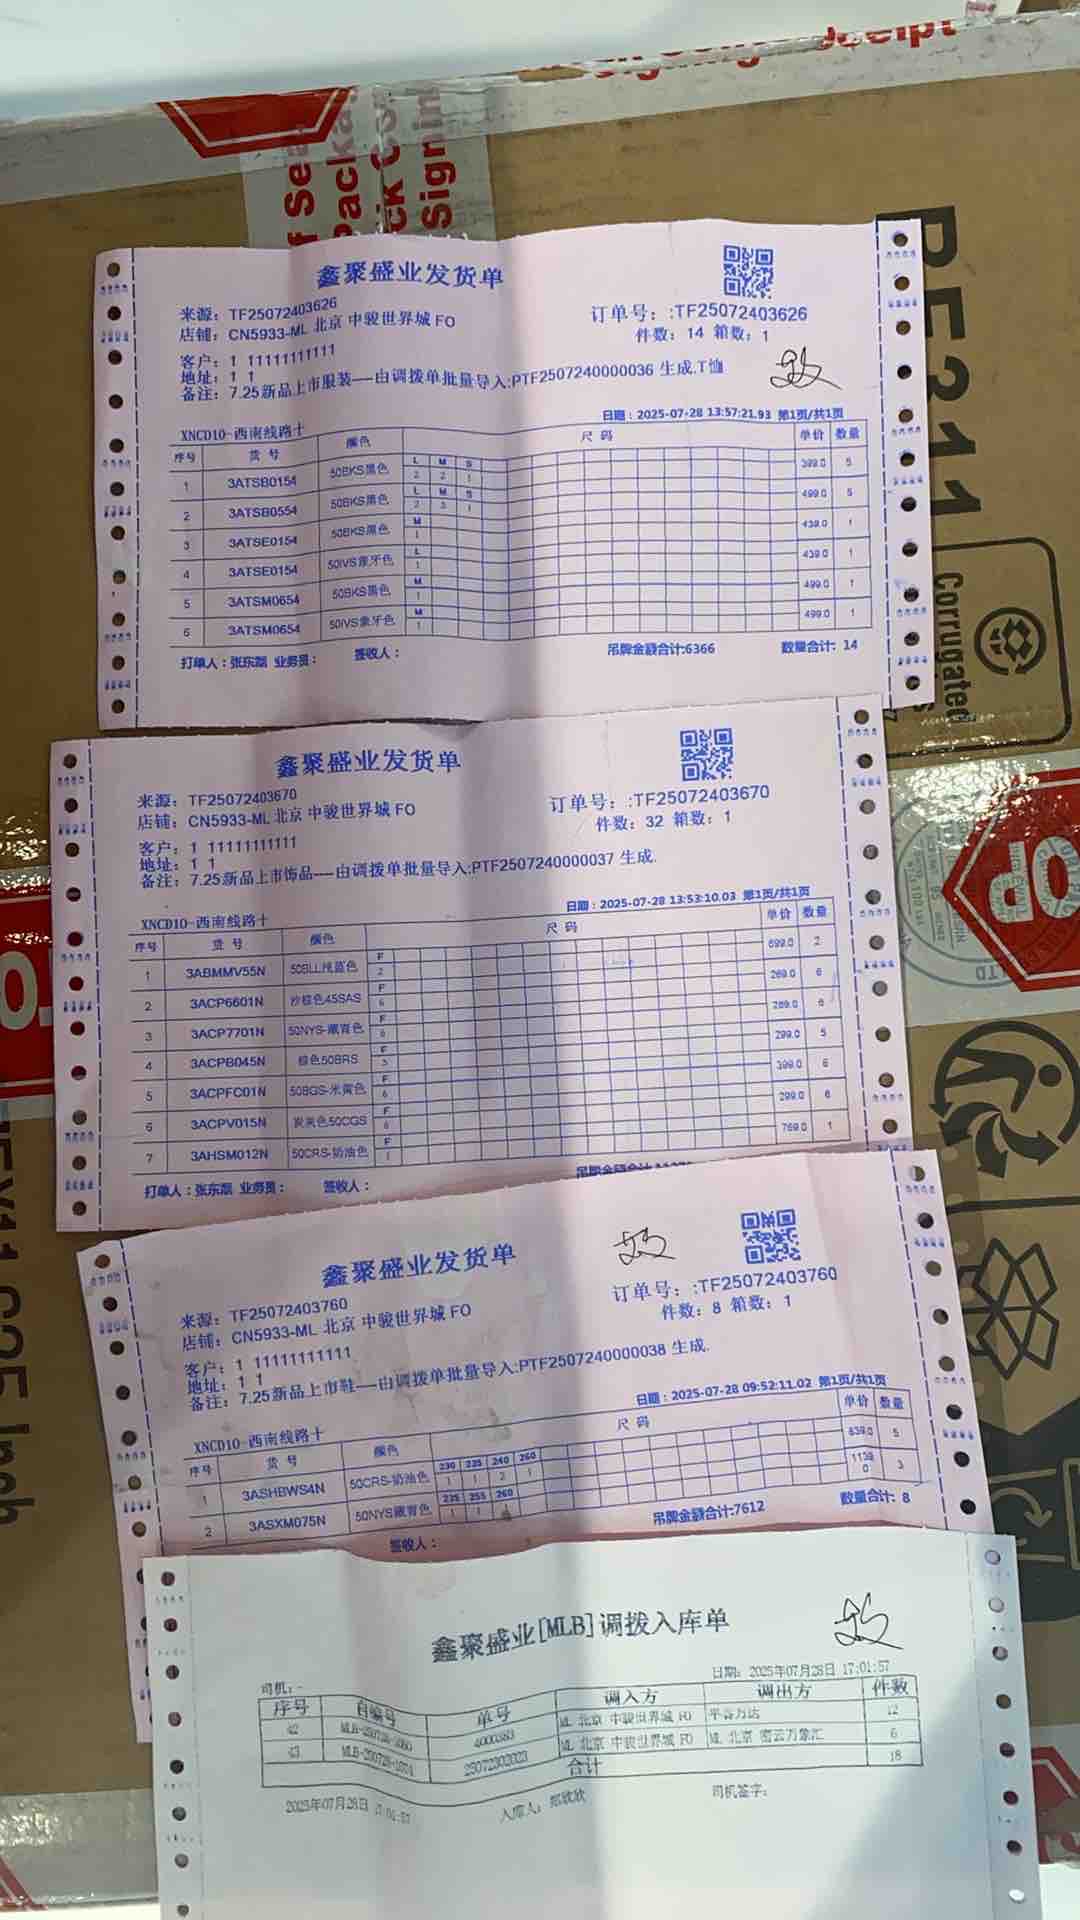 f Sea
Packa
ick C
Signin
Receipt
RE311
Corrugated
鑫聚盛业发货单
来源：TF25072403626
订单号：:TF25072403626
店铺：CN5933-ML 北京 中骏世界城 FO
件数：14 箱数：1
客户：1 11111111111
地址：1 1
备注：7.25新品上市服装----由调拨单批量导入:PTF2507240000036 生成.T恤
日期：2025-07-28 13:57:21.93 第1页/共1页
XNCD10-西南线路十
序号 货 号 颜色 尺 码 单价 数量
L M S
1 3ATSB0154 50BKS黑色 2 2 1 399.0 5
L M S
2 3ATSB0554 50BKS黑色 2 3 1 499.0 5
M
3 3ATSE0154 50BKS黑色 1 439.0 1
L
4 3ATSE0154 50IVS象牙色 1 439.0 1
M
5 3ATSM0654 50BKS黑色 1 499.0 1
M
6 3ATSM0654 50IVS象牙色 1 499.0 1
打单人：张东磊 业务员： 签收人： 吊牌金额合计:6366 数量合计：14
鑫聚盛业发货单
来源：TF25072403670
订单号：:TF25072403670
店铺：CN5933-ML 北京 中骏世界城 FO
件数：32 箱数：1
客户：1 11111111111
地址：1 1
备注：7.25新品上市饰品----由调拨单批量导入:PTF2507240000037 生成.
日期：2025-07-28 13:53:10.03 第1页/共1页
XNCD10-西南线路十
序号 货 号 颜色 尺 码 单价 数量
F
1 3ABMMV55N 50BLL浅蓝色 2 699.0 2
F
2 3ACP6601N 沙棕色45SAS 6 269.0 6
F
3 3ACP7701N 50NYS-藏青色 6 269.0 6
F
4 3ACPB045N 棕色50BRS 5 299.0 5
F
5 3ACPFC01N 50BGS-米黄色 6 399.0 6
F
6 3ACPV015N 炭灰色50CGS 6 299.0 6
F
7 3AHSM012N 50CRS-奶油色 1 769.0 1
打单人：张东磊 业务员： 签收人： 吊牌金额合计
鑫聚盛业发货单
来源：TF25072403760
订单号：:TF25072403760
店铺：CN5933-ML 北京 中骏世界城 FO
件数：8 箱数：1
客户：1 11111111111
地址：1 1
备注：7.25新品上市鞋----由调拨单批量导入:PTF2507240000038 生成.
日期：2025-07-28 09:52:11.02 第1页/共1页
XNCD10-西南线路十
序号 货 号 颜色 尺 码 单价 数量
230 235 240 260
1 3ASHBWS4N 50CRS-奶油色 1 1 2 1 839.0 5
235 255 260
2 3ASXM075N 50NYS藏青色 1 1 1 1139.0 3
签收人： 吊牌金额合计:7612 数量合计：8
鑫聚盛业[MLB]调拨入库单
司机：-
日期：2025年07月28日 17:01:57
序号 自编号 单号 调入方 调出方 件数
42 ML 北京 中骏世界城 FO 平谷万达 12
43 ML 北京 中骏世界城 FO ML 北京 密云万象汇 6
合计 18
2025年07月28日 17:01:57 入库人：郑欣欣 司机签字：
OP